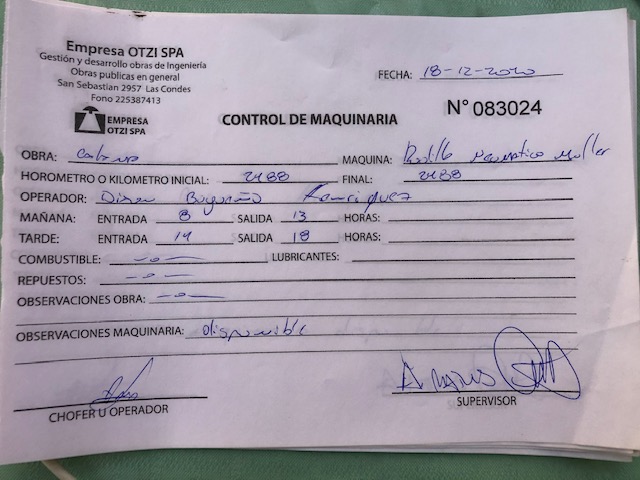 Empresa OTZI SPA
Gestión y desarrollo obras de Ingeniería
Obras publicas en general
San Sebastian 2957 Las Condes
Fono 225387413
EMPRESA
OTZI SPA
FECHA: 18-12-2020
CONTROL DE MAQUINARIA N° 083024
OBRA: MAQUINA: Rodillo Neumatico Muller
HOROMETRO O KILOMETRO INICIAL: 2488 FINAL: 2488
OPERADOR: Ramirquez
MAÑANA: ENTRADA 8 SALIDA 13 HORAS:
TARDE: ENTRADA 14 SALIDA 18 HORAS:
COMBUSTIBLE: -o- LUBRICANTES:
REPUESTOS: -o-
OBSERVACIONES OBRA: -o-
OBSERVACIONES MAQUINARIA: disponible
CHOFER U OPERADOR SUPERVISOR